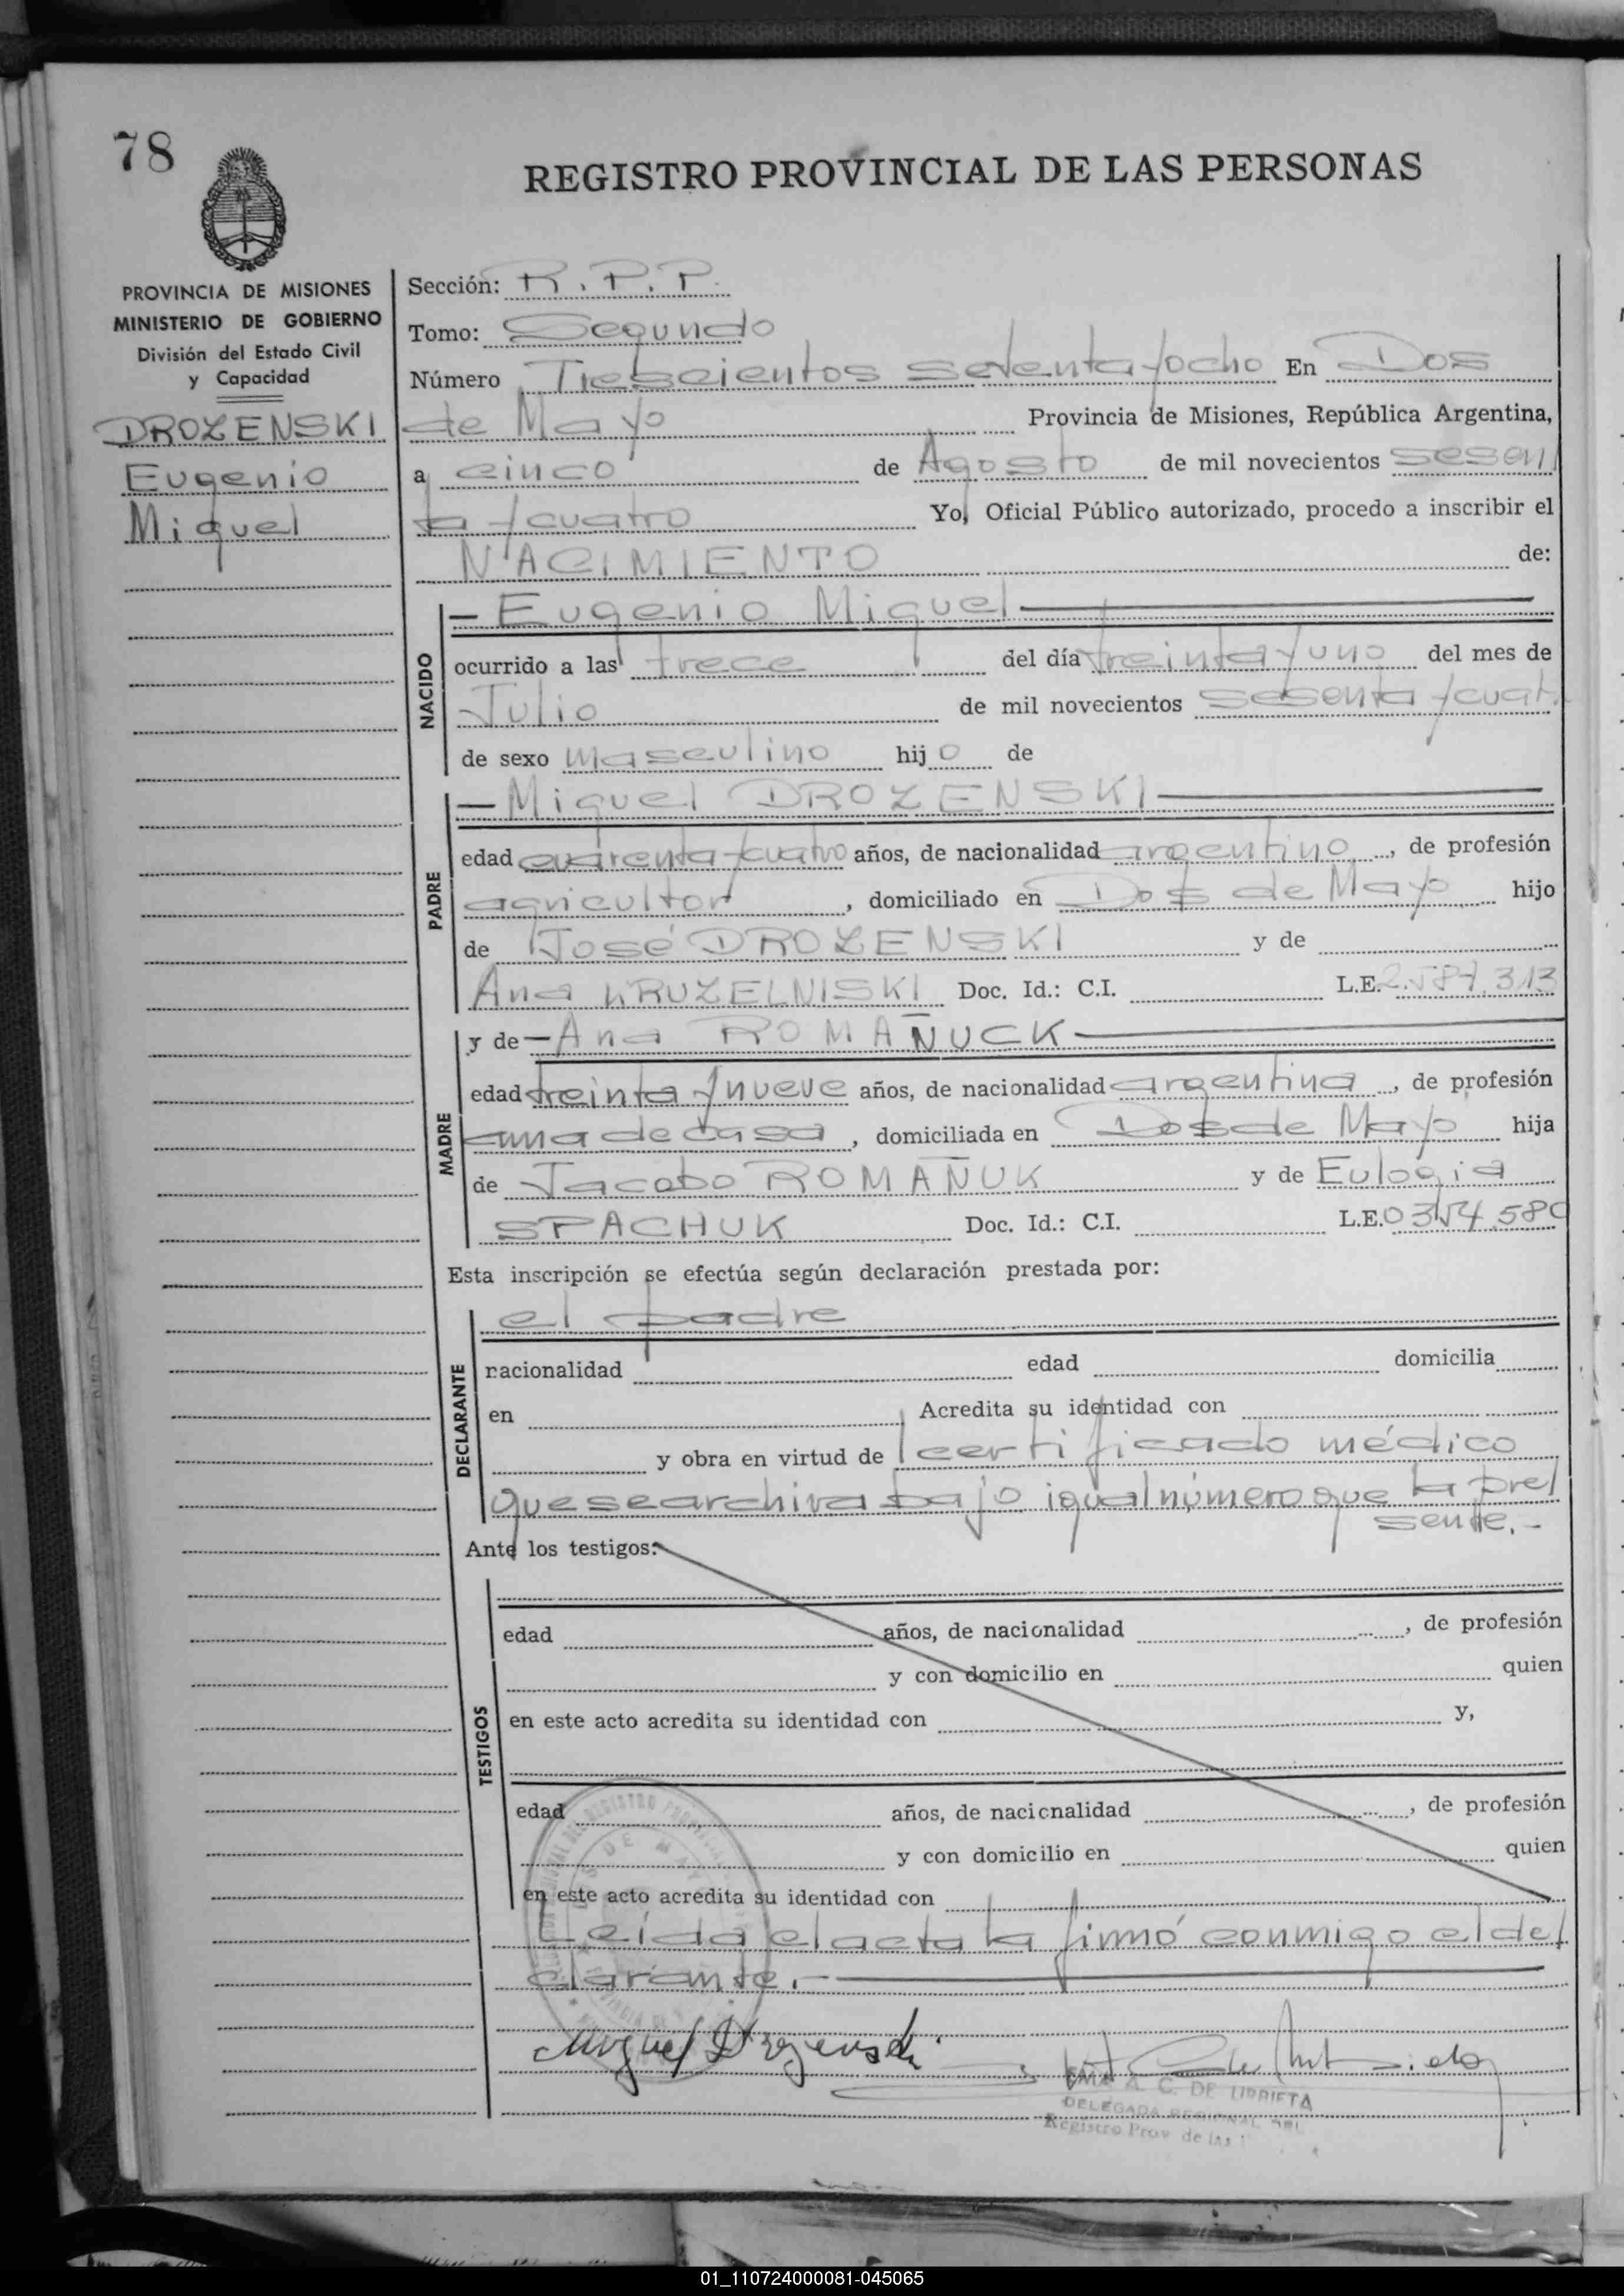 78
REGISTRO PROVINCIAL DE LAS PERSONAS
PROVINCIA DE MISIONES
MINISTERIO DE GOBIERNO
División del Estado Civil
y Capacidad
DROZENSKI
Eugenio
Miguel
Sección: R.P.P.
Tomo: Segundo
Número Trescientos setenta y ocho En Dos
de Mayo Provincia de Misiones, República Argentina,
a cinco de Agosto de mil novecientos sesen
ta y cuatro Yo, Oficial Público autorizado, procedo a inscribir el
NACIMIENTO de:
NACIDO
— Eugenio Miguel —
ocurrido a las trece del día treinta y uno del mes de
Julio de mil novecientos sesenta y cuat
de sexo masculino hijo de
PADRE
— Miguel DROZENSKI —
edad cuarenta y cuatro años, de nacionalidad argentino, de profesión
agricultor, domiciliado en Dos de Mayo hijo
de José DROZENSKI y de
Ana KRUZELNISKI Doc. Id.: C.I. L.E. 2.587.313
MADRE
y de — Ana ROMAÑUCK —
edad treinta y nueve años, de nacionalidad argentina, de profesión
ama de casa, domiciliada en Dos de Mayo hija
de Jacobo ROMAÑUK y de Eulogia
SPACHUK Doc. Id.: C.I. L.E.
Esta inscripción se efectúa según declaración prestada por:
DECLARANTE
el padre
nacionalidad edad domicilia
en Acredita su identidad con
y obra en virtud de certificado médico
que se archiva bajo igual número que la pre
sente.-
Ante los testigos:
TESTIGOS
edad años, de nacionalidad , de profesión
y con domicilio en quien
en este acto acredita su identidad con y,
edad años, de nacionalidad , de profesión
y con domicilio en quien
en este acto acredita su identidad con
Leída el acta la firmó conmigo el de
clarante.-
Miguel Drozenski
EMA A. C. DE URRIETA
DELEGADA REGIONAL
Registro Prov. de las
01_110724000081-045065